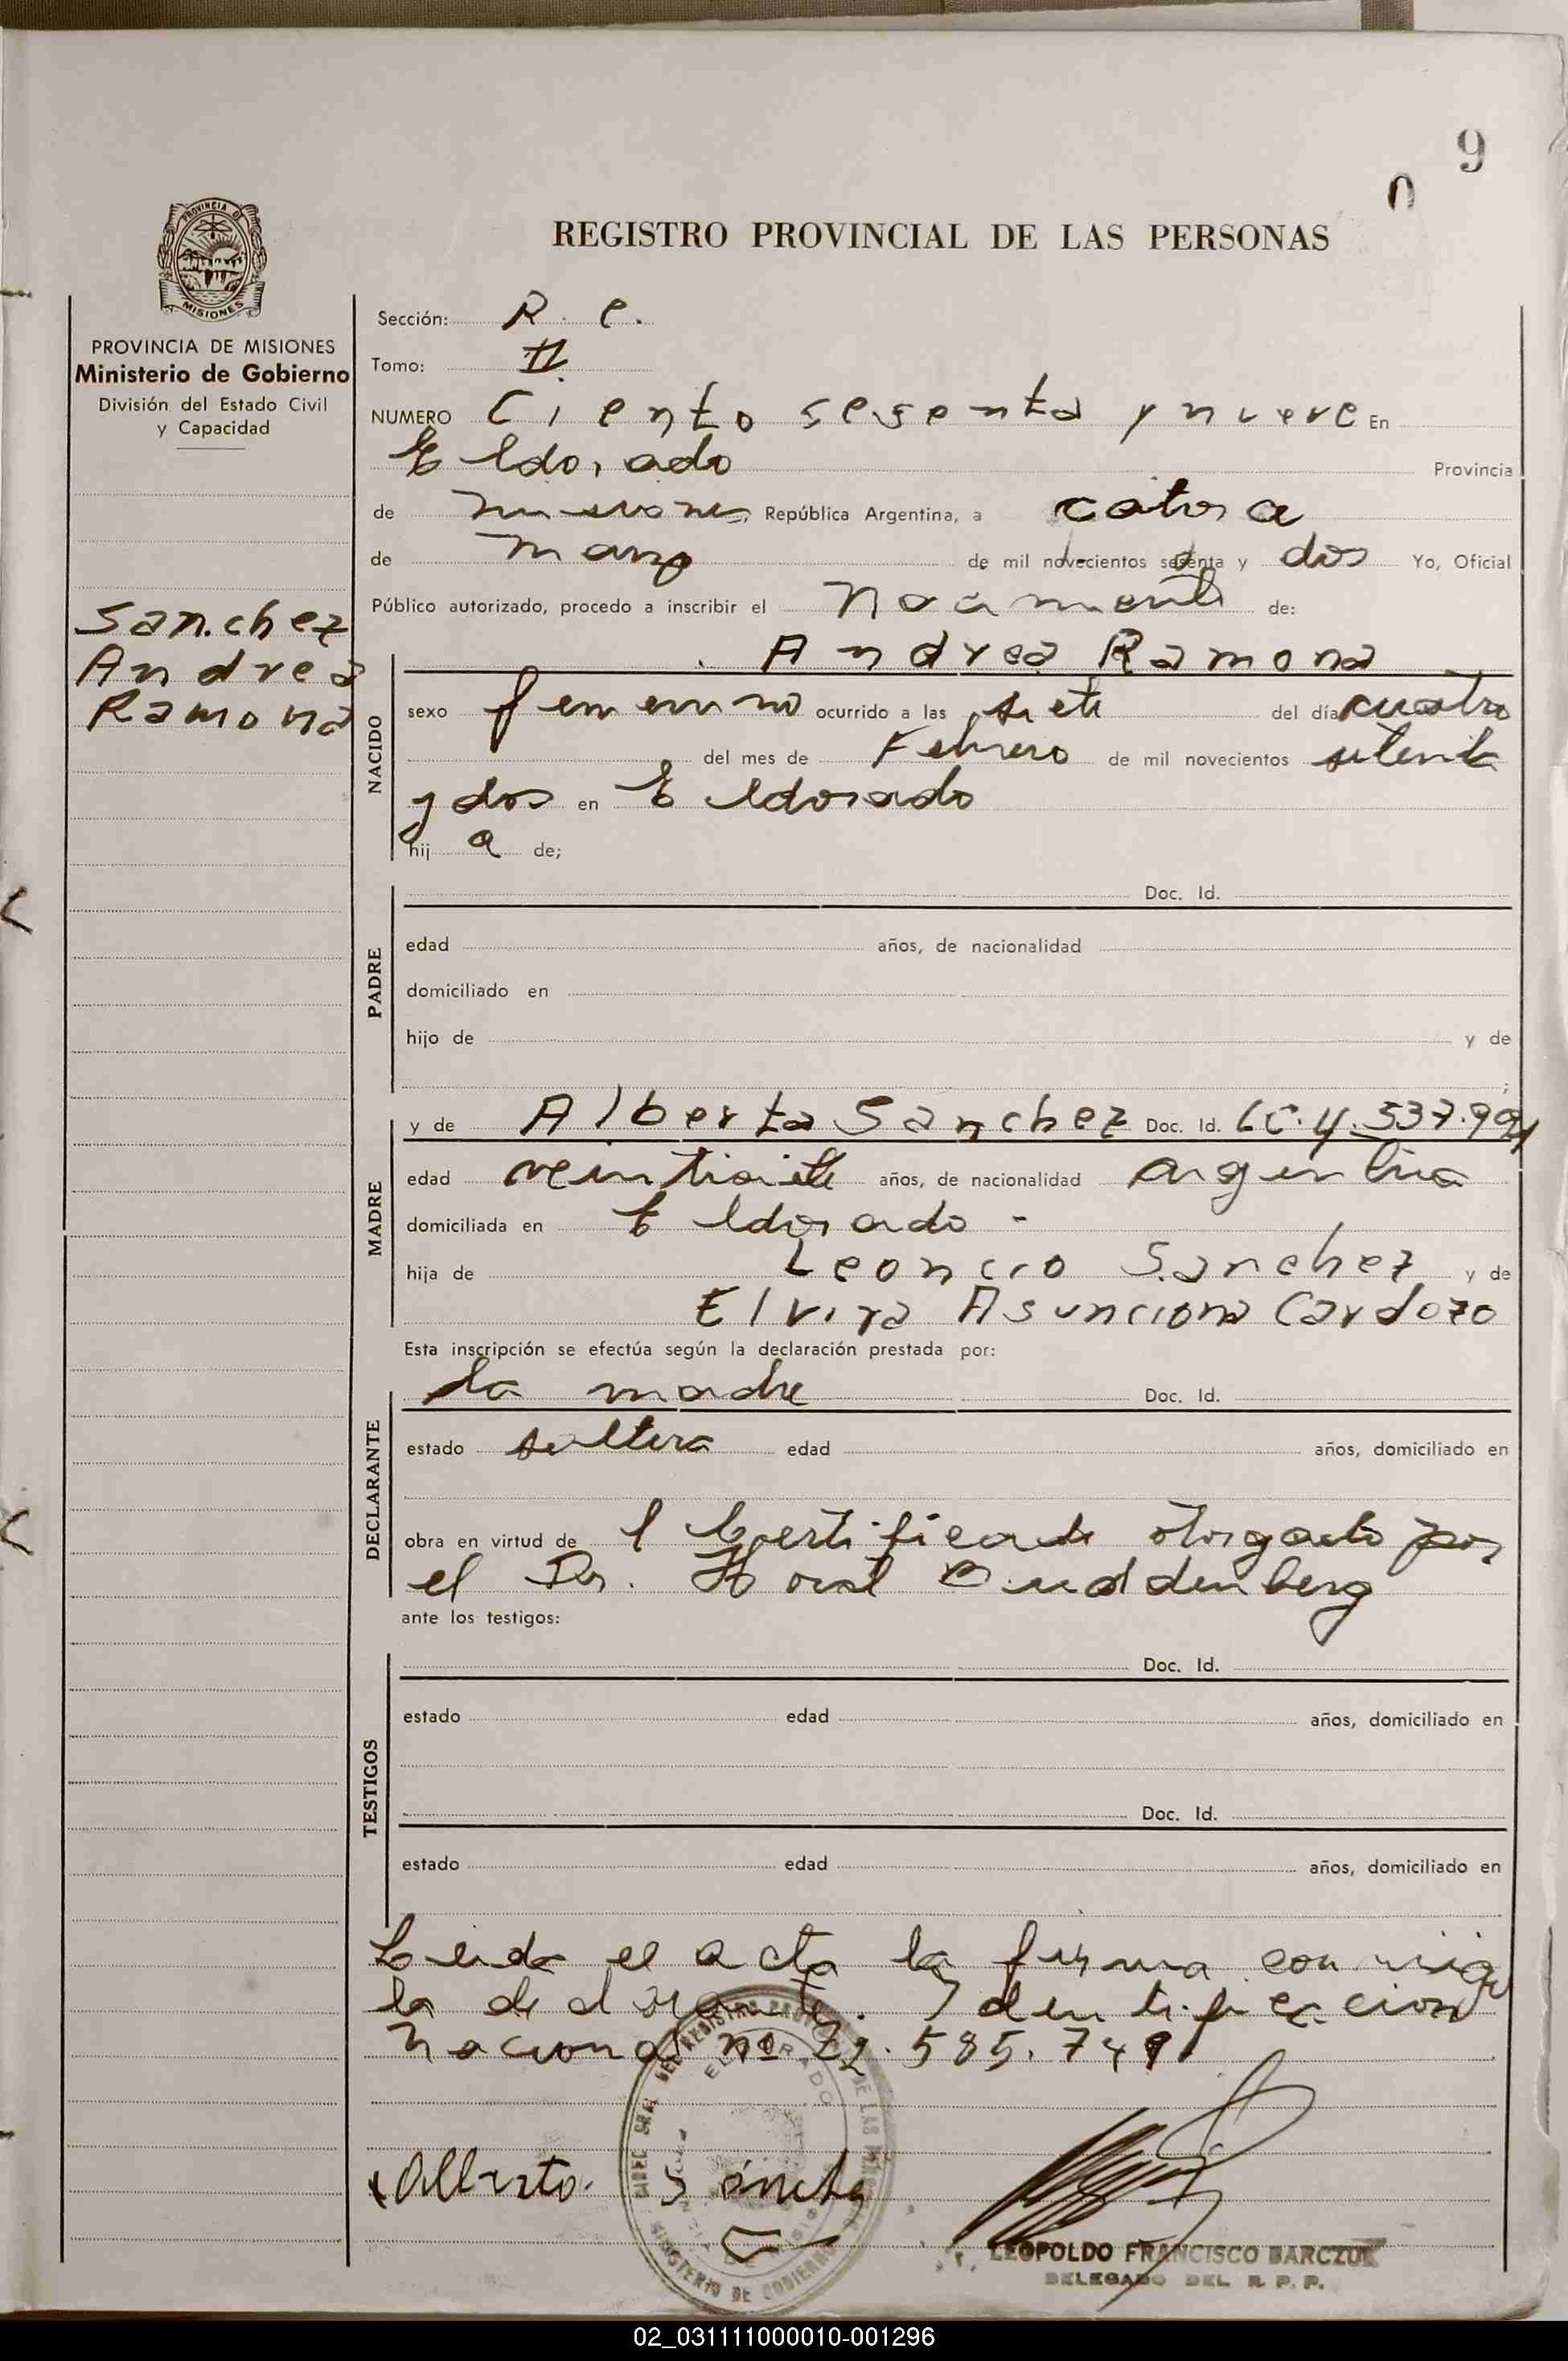 9
0
PROVINCIA DE
MISIONES
REGISTRO PROVINCIAL DE LAS PERSONAS
PROVINCIA DE MISIONES
Ministerio de Gobierno
División del Estado Civil
y Capacidad
Sanchez
Andrea
Ramona
Sección: R. C.
Tomo: II
NUMERO Ciento sesenta y nueve En
Eldorado Provincia
de misiones, República Argentina, a catorce
de marzo de mil novecientos sesenta y dos Yo, Oficial
Público autorizado, procedo a inscribir el nacimiento de:
NACIDO
Andrea Ramona
sexo femenino ocurrido a las siete del día cuatro
del mes de Febrero de mil novecientos setenta
y dos en Eldorado
hij a de;
PADRE
Doc. Id.
edad años, de nacionalidad
domiciliado en
hijo de y de
;
MADRE
y de Alberta Sanchez Doc. Id. LC. 4.537.991
edad veintisiete años, de nacionalidad argentina
domiciliada en Eldorado -
hija de Leoncio Sanchez y de
Elvira Asunciona Cardozo
Esta inscripción se efectúa según la declaración prestada por:
DECLARANTE
la madre Doc. Id.
estado soltera edad años, domiciliado en
obra en virtud de l Certificado otorgado por
el Dr. Horst Buddenberg
ante los testigos:
TESTIGOS
Doc. Id.
estado edad años, domiciliado en
Doc. Id.
estado edad años, domiciliado en
Leida el acta la firma conmigo
la declarante. Identificacion
nacional nº 22.585.749
Alberta Sanchez
LEOPOLDO FRANCISCO BARCZUK
DELEGADO DEL R. P. P.
02_031111000010-001296